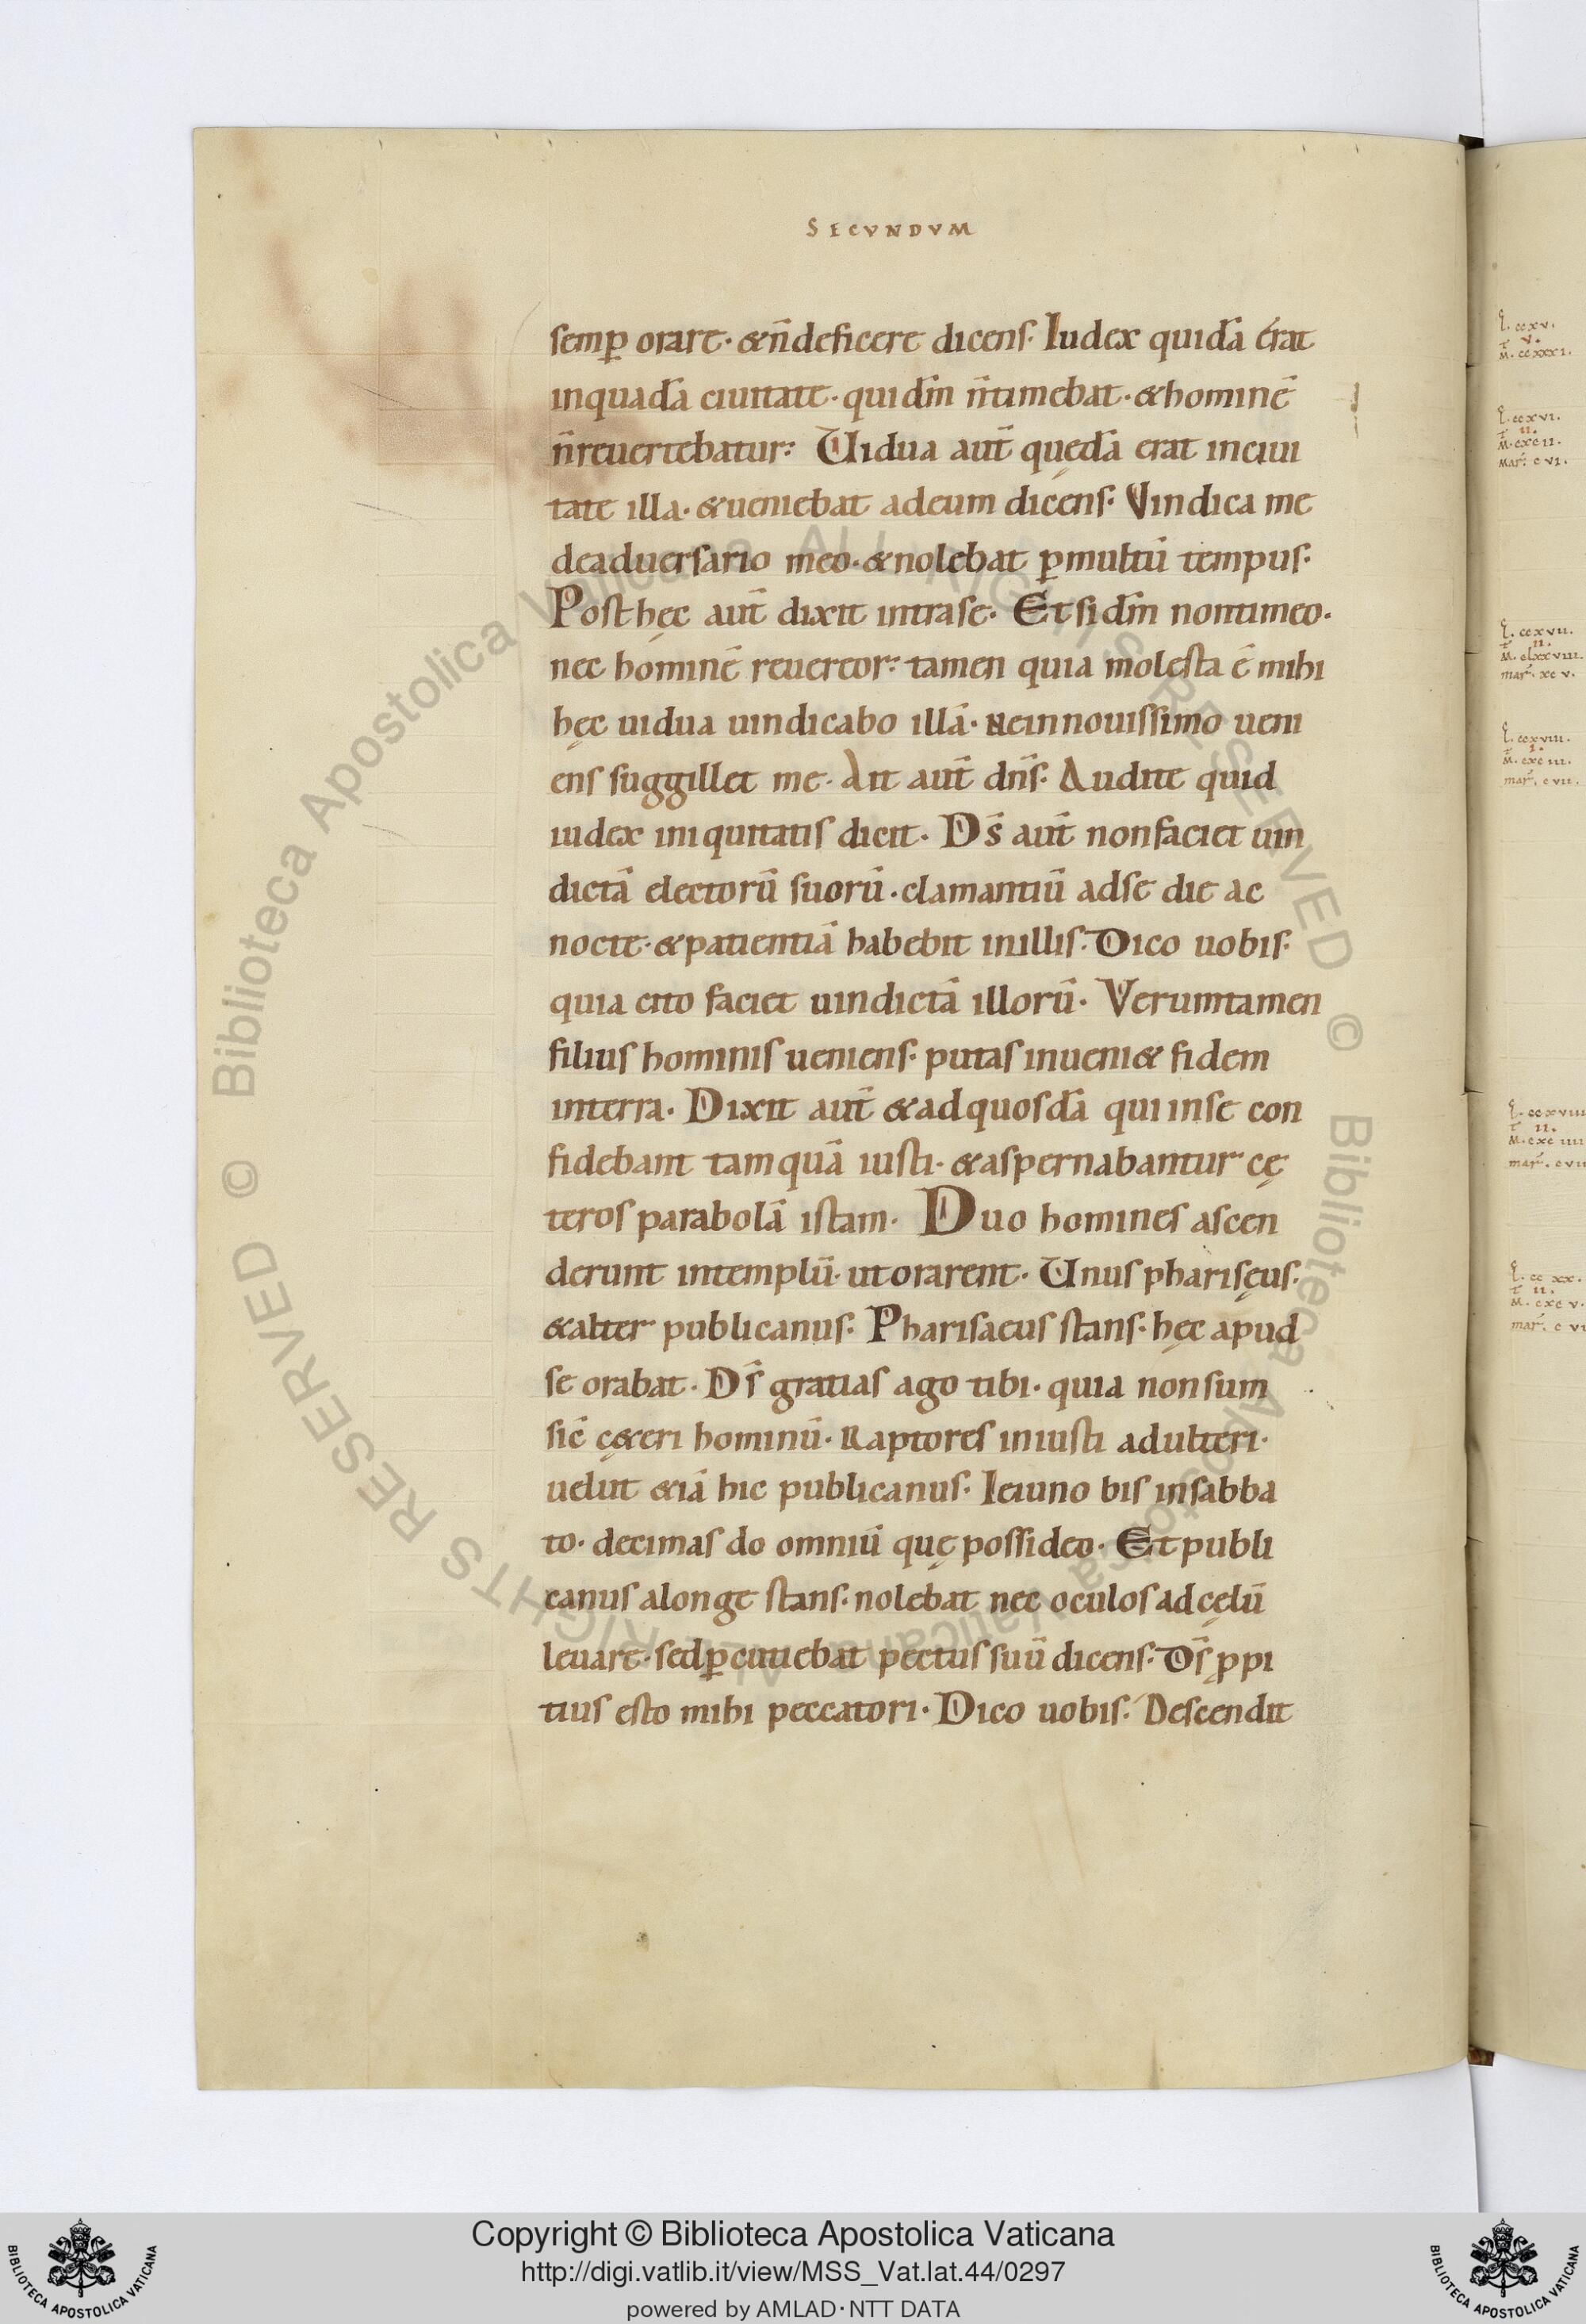 SECVNDVM
semꝑ orare· &n̄deficere dicens· Iudex quidā erat
inquadā ciuitate· quidm̄ n̄timebat· &hominē
n̄reuertebatur: Uidua aut̄ quędā erat inciui
tate illa· &ueniebat adeum dicens· Vindica me
deaduersario meo· &nolebat ꝑmultū tempus·
Posthęc aut̄ dixit intrase· Etsidm̄ nontimeo·
nec hominē reuereor: tamen quia molesta ē mihi
hęc uidua uindicabo illā· neinnouissimo ueni
ens suggillet me· Ait aut̄ dn̄s· Audite quid
iudex iniquitatis dicit· Ds̄ aut̄ nonfaciet uin
dictā electorū suorū· clamantiū adse die ac
nocte· &patientiā habebit inillis· Dico uobis·
quia cito faciet uindictā illorū· Verumtamen
filius hominis ueniens· putas inueni& fidem
interra· Dixit aut̄ &adquosdā qui inse con
fidebant tamquā iusti· &aspernabantur cę
teros parabolā istam· Duo homines ascen
derunt intemplū· utorarent· Unus pharisęus·
&alter publicanus· Pharisaeus stans· hęc apud
se orabat· Ds̄ gratias ago tibi· quia nonsum
sic̄ cę&eri hominū· Raptores iniusti adulteri·
uelut &iā hic publicanus· Ieiuno bis insabba
to· decimas do omniū quę possideo· Et publi
canus alonge stans· nolebat nec oculos adcęlū
leuare· sedꝑcutiebat pectus suū dicens· Ds̄ ꝓpi
tius esto mihi peccatori· Dico uobis· Descendit
L. ccxv.
V.
M. ccxxxi.
L. ccxvi.
II.
M. cxcii.
Mar̄. cvi.
L. ccxvii.
II.
M. clxxviii.
mar̄. xcv.
L. ccxviii.
I.
M. cxciii.
mar̄. cvii.
L. ccxviiii
II.
M. cxciiii
L. ccxx.
II.
M. cxcv.
© Biblioteca Apostolica Vaticana ALL RIGHTS RESERVED
© Biblioteca Apostolica Vaticana ALL RIGHTS RESERVED
Copyright © Biblioteca Apostolica Vaticana
http://digi.vatlib.it/view/MSS_Vat.lat.44/0297
powered by AMLAD·NTT DATA
BIBLIOTECA APOSTOLICA VATICANA
BIBLIOTECA APOSTOLICA VATICANA